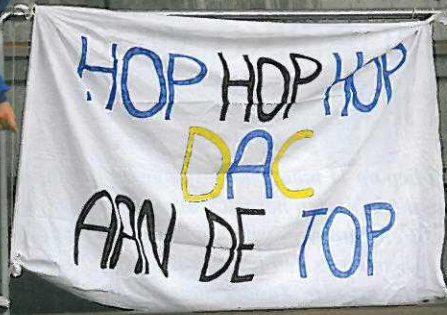 HOP HOP HOP
DAC
AAN DE TOP